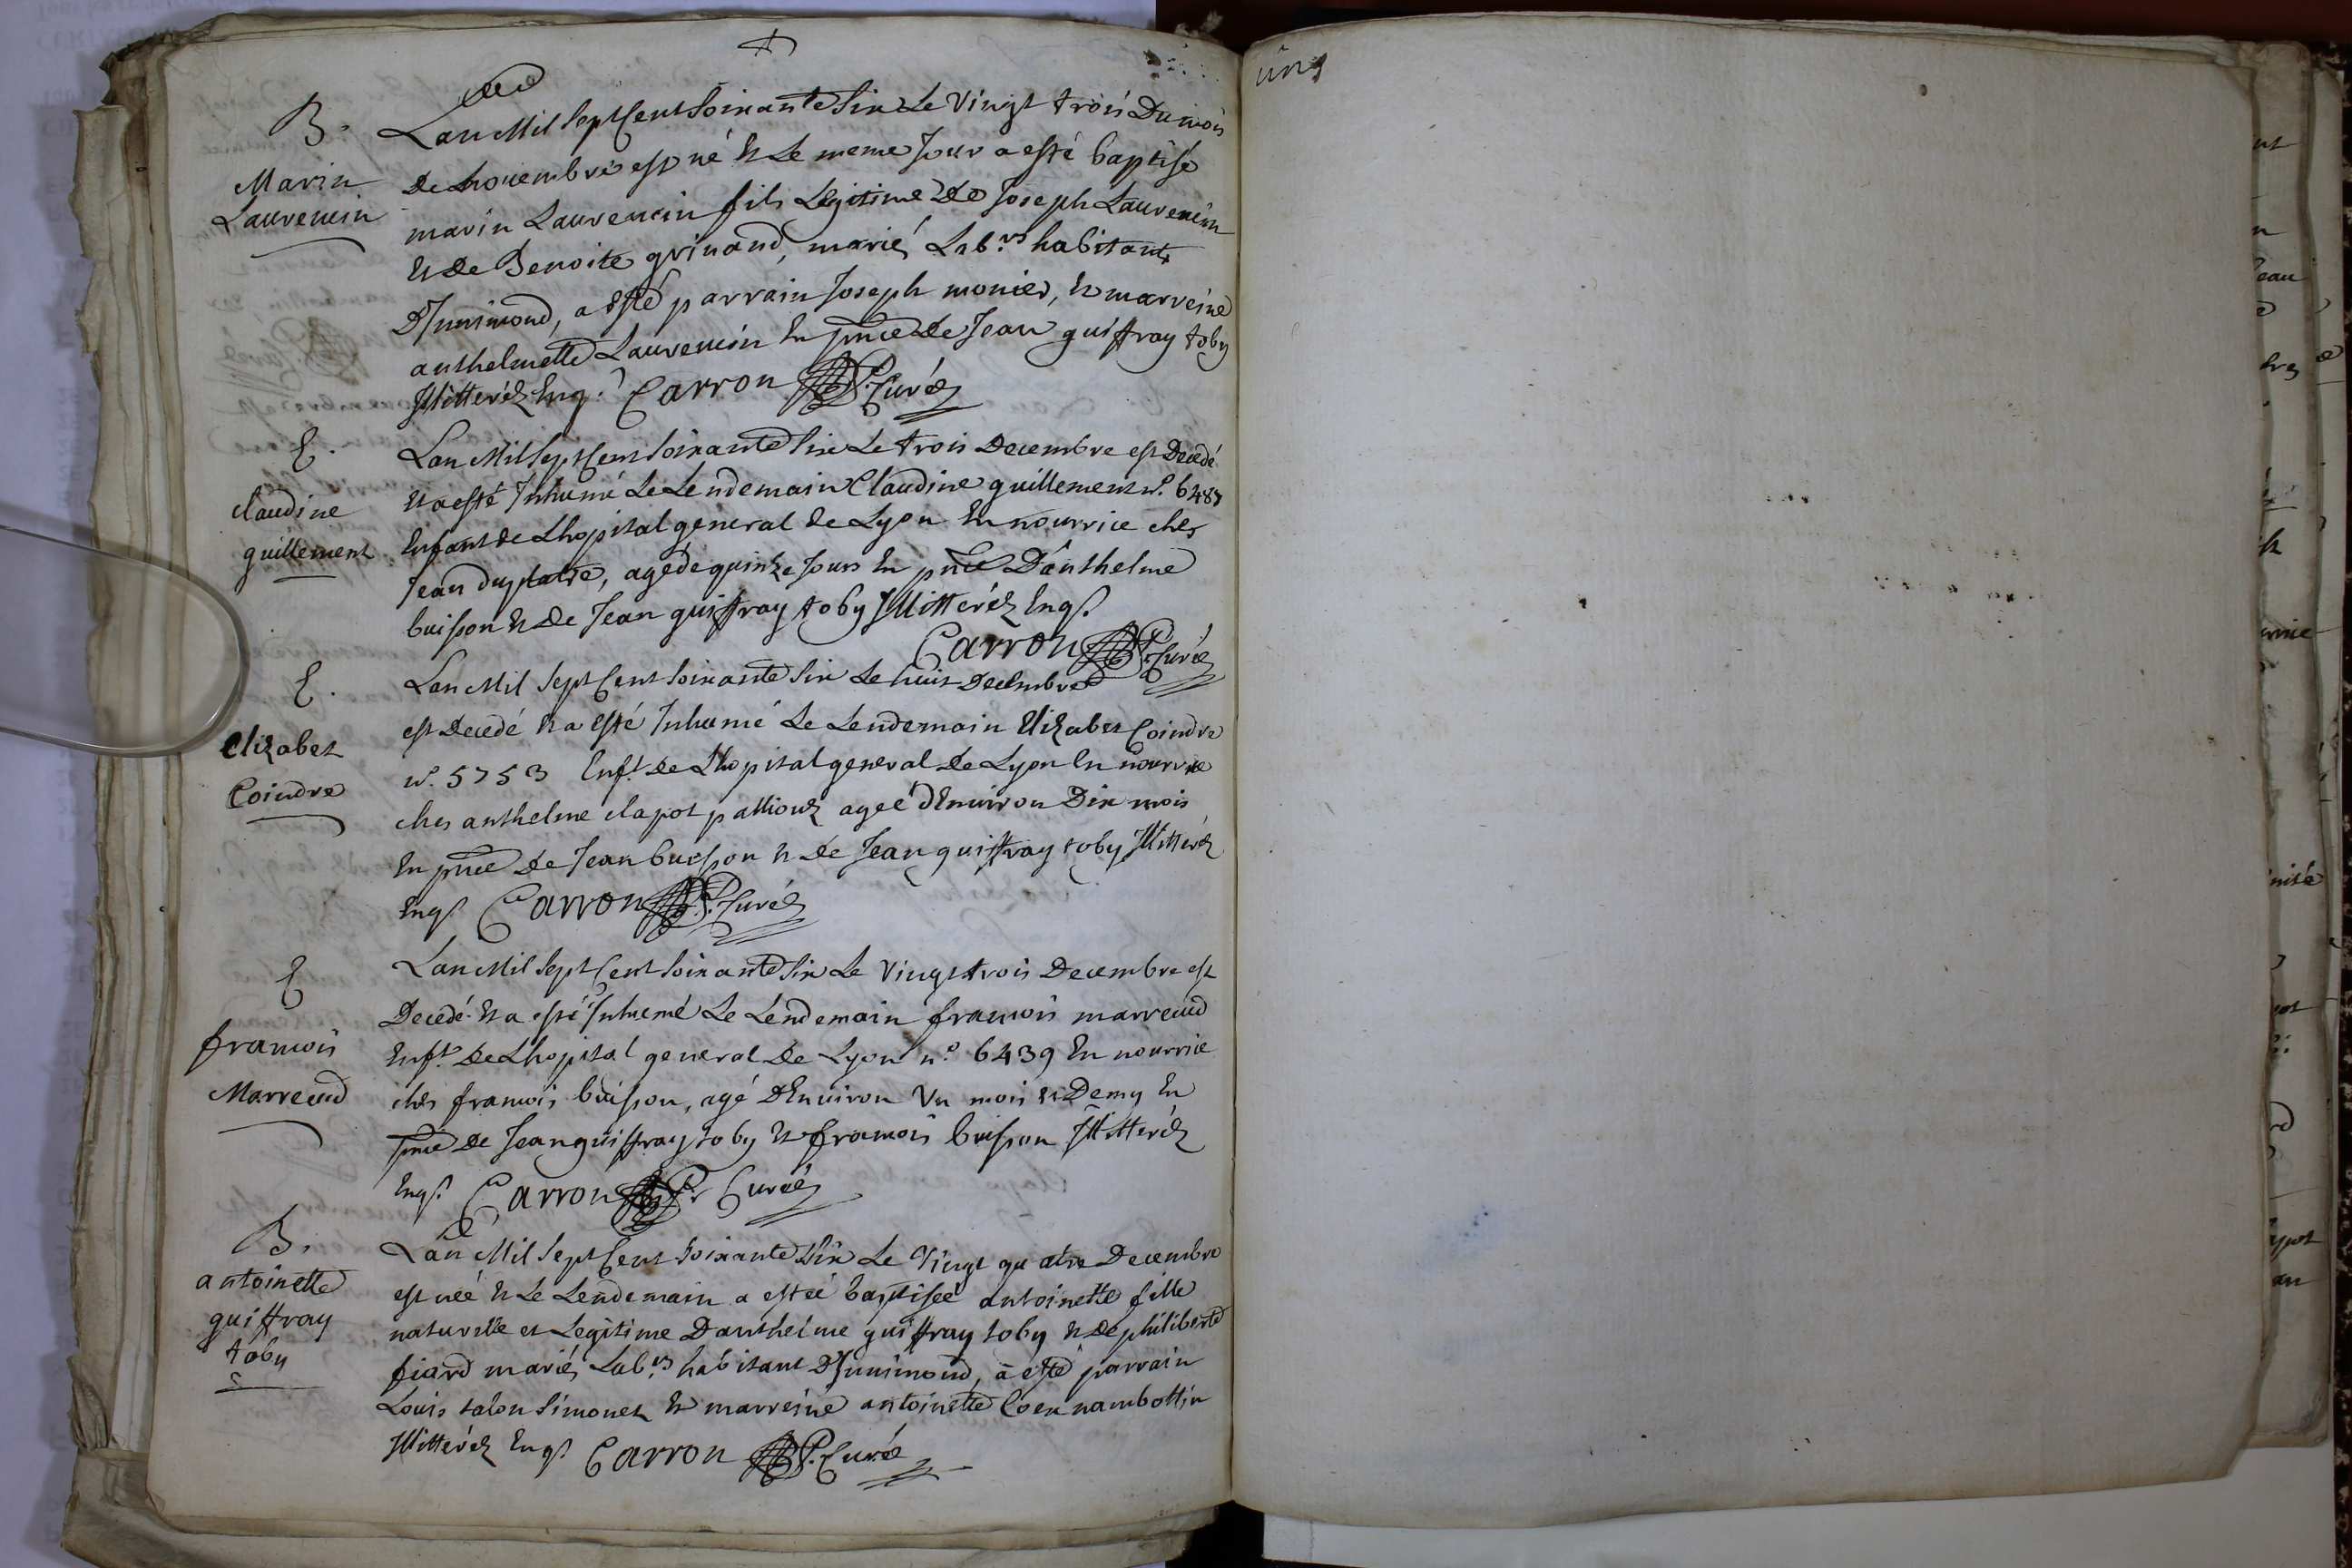 B.
Marin
Laurencin
Lan Mil Sept Cent Soixante Six Le Vingt trois Du mois
De Novembre est né & Le meme Jour a esté baptisé
marin Laurencin fils Legitime De Joseph Laurencin
& De Benoite grinand, mariés Lab.rs habitants
D'Innimond, a esté parrain Joseph monier, & marreine
anthelmette Laurencin En pnce de Jean guiffray toby
Illitteréz Enqs. Carron P. Curé
E.
claudine
guillement
Lan Mil Sept Cent Soixante Six Le trois Decembre est Decedé
& a esté Inhumé Le Lendemain Claudine guillement n.o 648
Enfant de Lhopital general de Lyon En nourrice ches
Jean duplatre, agé de quinze Jours En pnce D'anthelme
buisson & De Jean guiffray toby Illitteréz Enqs.
Carron P. Curé
E.
Elizabet
Coindre
Lan Mil Sept Cent Soixante Six Le huit Decembre
est Decedé & a esté Inhumé Le Lendemain Elizabet Coindre
n.o 5753 Enft. De Lhopital general De Lyon En nourrice
ches anthelme clapot palliouz ageé d'Environ Dix mois
En pnce De Jean buisson & de Jean guiffray toby Illitteréz
Enqs. Carron P. Curé
E
francois
Marreud
Lan Mil Sept Cent Soixante Six Le Vingt trois Decembre est
Decedé & a esté Inhumé Le Lendemain francois marreud
Enft. De Lhopital general De Lyon n.o 6439 En nourrice
ches francois buisson, agé D'Environ Un mois & Demy En
pnce De Jean guiffray toby & francois buisson Illitteréz
Enqs. Carron P.r Curé
B.
antoinette
guiffray
toby
Lan Mil Sept Cent Soixante Six Le Vingt quatre Decembre
est neé & Le Lendemain a esteé baptiseé antoinette fille
naturelle et Legitime D'anthelme guiffray toby & De philiberte
fiard mariés Lab.rs habitant D'Innimond, a esté parrain
Louis talon Simonet & marreine antoinette Coen nambottin
Illitteréz Enqs. Carron P. Curé